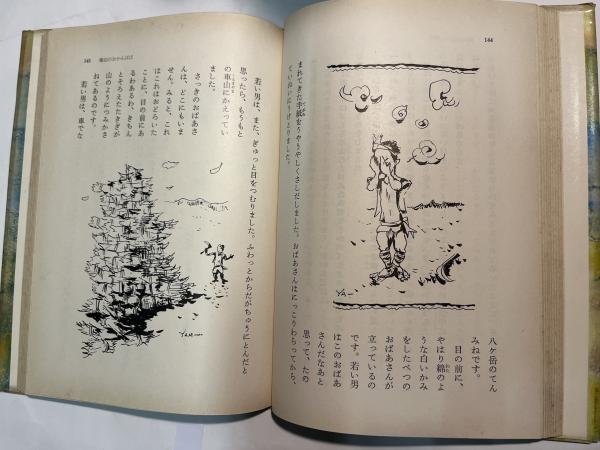 144
八ヶ岳のてん
みねです。
目の前に、
やはり綿のよ
うな白いかみ
をしたべつの
おばあさんが
立っているの
です。若い男
はこのおばあ
さんだなあと
思って、たの
まれてきた手紙をうやうやしくさしだしました。おばあさんはにっこりわらってから、
ていねいにうけとりました。
145
若い男は、また、ぎゅっと目をつむりました。ふわっとからだがちゅうにとんだと
思ったら、もうもと
の車山にかえってい
ました。
さっきのおばあさ
んは、どこにもいま
せん。みると、これ
はこれはおどろいた
ことに、目の前にあ
るわあるわ、きちん
とそろえたたきぎが
山のようにつみかさ
ねてあるのです。
若い男は、車でな